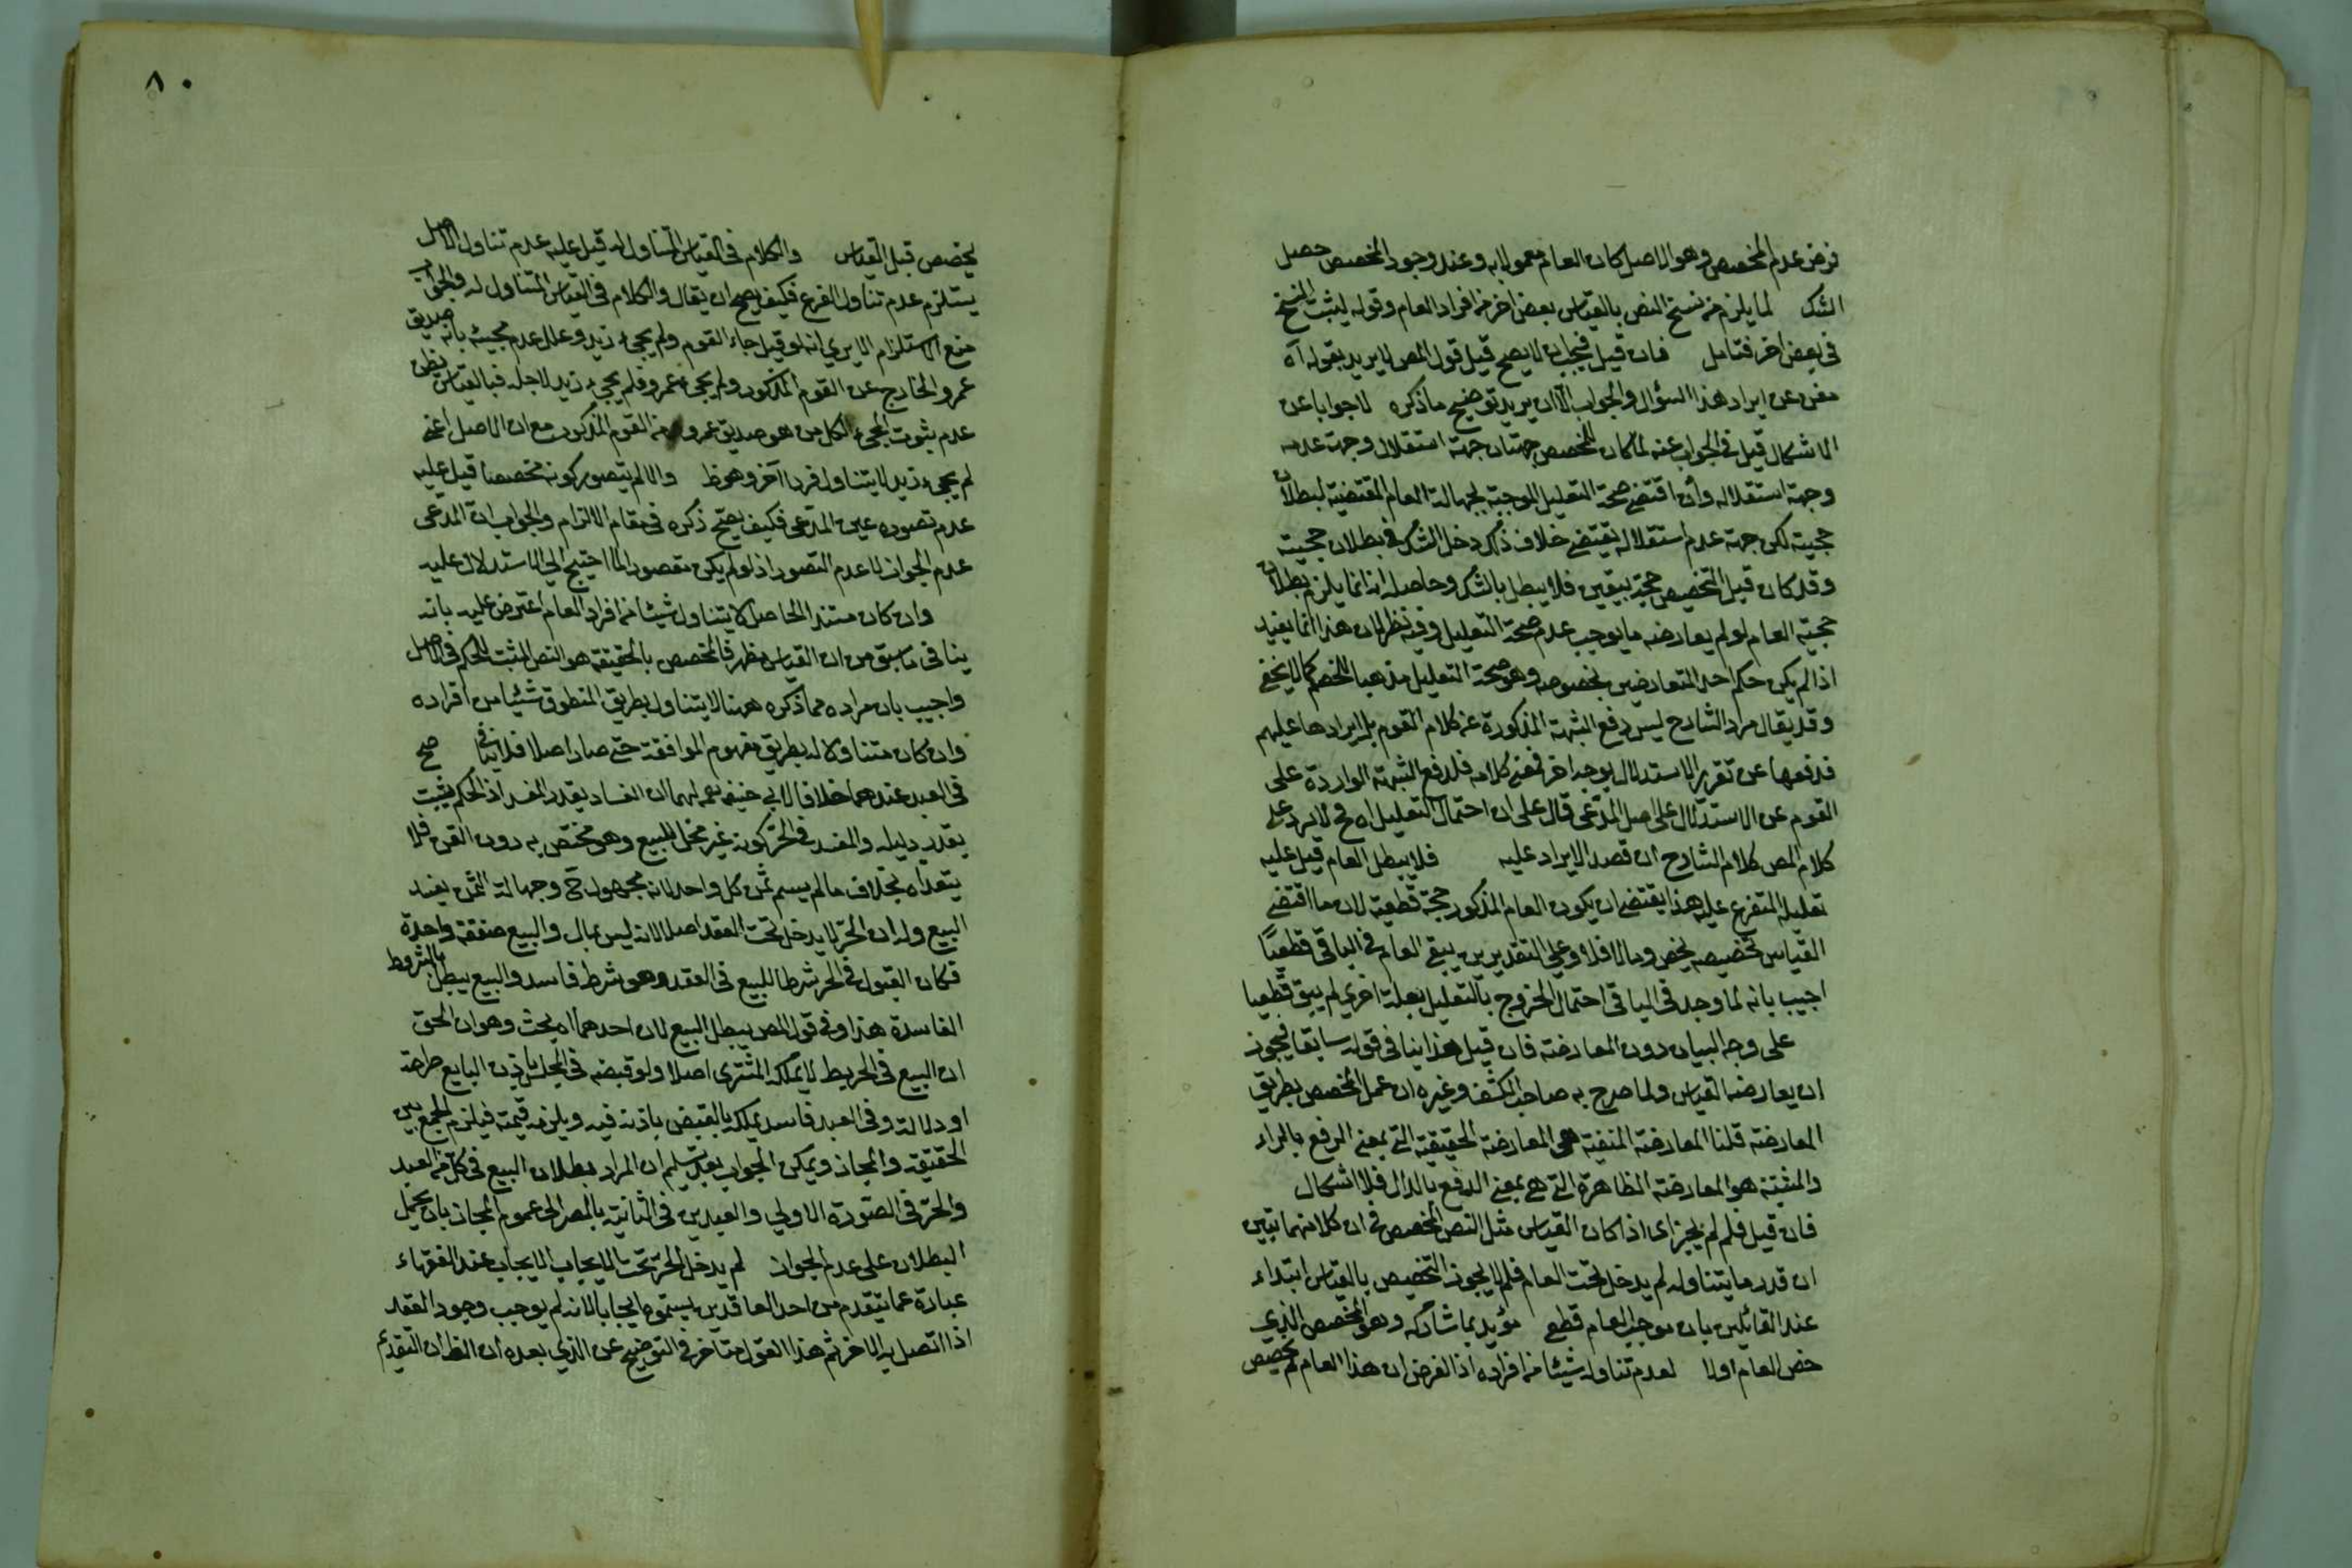 فرض عدم المخصص وهو الاصل كان العام معمولا به وعند وجود المخصص حصل
الشك لما يلزم من نسخ النص بالقياس بعض اخر من افراد العام وقوله ليثبت النسخ
فى بعض اخر فتامل فان قيل فيجب ان لا يصح قيل قول المص لا يريد بقوله آه
مغن عن ايراد هذا السؤال والجواب الا ان يريد توضيح ما ذكره لا جوابا عن
الاشكال قيل فى الجواب عنه لما كان للمخصص جهتان جهة استقلال وجهة عدمه
وجهة استقلاله وأن اقتضى صحة التعليل الموجبة لجهالة العام المقتضية لبطلان
حجيته لكن جهة عدم استقلاله يقتضى خلاف ذلك دخل الشك فى بطلان حجيته
وقد كان قبل التخصيص حجة بيقين فلا يبطل بالشك وحاصله انه انما يلزم بطلان
حجية العام لو لم يعارضه ما يوجب عدم صحة التعليل وفيه نظر لان هذا انما يفيد
اذا لم يكن حكم احد المتعارضين بخصوصه وهو صحة التعليل مذهبا للخصم كما لا يخفى
وقد يقال مراد الشارح ليس دفع الشبهة المذكورة عن كلام القوم بل ايرادها عليهم
فدفعها عن تقرير الاستدلال بوجه اخر فمعنى كلامه فلدفع الشبهة الواردة على
القوم عن الاستدلال على اصل المدعى قال على ان احتمال التعليل اه فح لا يرد على
كلام المص كلام الشارح ان قصد الايراد عليه فلا يبطل العام قيل عليه
تعليله المتفرع عليه هذا يقتضى ان يكون العام المذكور حجة قطعية لان ما اقتضى
القياس تخصيصه يخص وما لا فلا وعلى التقديرين يبقى العام فى الباقى قطعيا
اجيب بانه لما وجد فى الباقى احتمال الخروج بالتعليل بعلة اخرى لم يبق قطعيا
على وجه البيان دون المعارضة فان قيل هذا ينافى قوله سابقا فيجوز
ان يعارضه القياس ولما صرح به صاحب الكشف وغيره ان عمل المخصص بطريق
المعارضة قلنا المعارضة المنفية هى المعارضة الحقيقية التى بمعنى الرفع بالراء
والمثبتة هو المعارضة الظاهرة التى هى بمعنى الدفع بالدال فلا اشكال
فان قيل فلم لم يجز اى اذا كان القياس مثل النص المخصص فى ان كلا منهما تبين
ان قدر ما يتناوله لم يدخل تحت العام فلم لا يجوز التخصيص بالقياس ابتداء
عند القائلين بان موجب العام قطعى مؤيد بما شاركه وهو المخصص الذى
خص العام اولا لعدم تناوله شيئا من افراده اذ الفرض ان هذا العام لم يخصص
٨٠
يخصص قبل القياس والكلام فى القياس المتناول له قيل عليه عدم تناول الاصل
يستلزم عدم تناول الفرع فكيف يصح ان يقال والكلام فى القياس المتناول له والجواب
منع الاستلزام الا يرى انه لو قيل جاء القوم ولم يجئ زيد وعلل عدم مجيئه بانه صديق
عمرو الخارج عن القوم المذكور ولم يجئ عمرو فلم يجئ زيد لاجله فبالقياس يظهر
عدم ثبوت المجئ لكل من هو صديق عمرو من القوم المذكور مع ان الاصل اعنى
لم يجئ زيد لا يتناول فردا آخر وهو ظ والا لم يتصور كونه مخصصا قيل عليه
عدم تصوره عين المدعى فكيف يصح ذكره فى مقام الالزام والجواب ان المدعى
عدم الجواز لا عدم التصور اذ لو لم يكن مقصورا لما احتيج الى الاستدلال عليه
وان كان مستند الحاصل لا يتناول شيئا من افراد العام اعترض عليه بانه
ينافى ما سبق من ان القياس مظهر فالمخصص بالحقيقة هو النص المثبت للحكم فى الاصل
واجيب بان مراده مما ذكره ههنا لا يتناول بطريق المنطوق شيئا من افراده
وان كان متناولا له بطريق مفهوم الموافقة حتى صار اصلا فلا ينافى صح
فى العبد عندهما خلافا لابى حنيفه رحمه لهما ان الفساد بقدر المفسد اذ الحكم يثبت
بقدر دليله والمفسد فى الحر كونه غير محل للبيع وهو مختص به دون القن فلا
يتعداه بخلاف ما لم يسم ثمن كل واحد لانه مجهول ح وجهالة الثمن يفسد
البيع وله ان الحر لا يدخل تحت العقد اصلا لانه ليس بمال والبيع صفقة واحدة
فكان القبول فى الحر شرطا للبيع فى العقد وهو شرط فاسد والبيع يبطل بالشروط
الفاسدة هذا وفى قول المص يبطل البيع لان احدهما اه بحث وهو ان الحق
ان البيع فى الحر يبطل لا يملكه المشترى اصلا ولو قبضه فى المجلس باذن البايع صراحة
او دلالة وفى العبد فاسد يملكه بالقبض باذنه فيه ويلزمه قيمته فيلزم الجمع بين
الحقيقة والمجاز ويمكن الجواب بعد تسليم ان المراد بطلان البيع فى كل من العبد
والحر فى الصورة الاولى والعبدين فى الثانية بالمصير الى عموم المجاز بان يحمل
البطلان على عدم الجواز لم يدخل الحر تحت الايجاب الايجاب عند الفقهاء
عبارة عما يتقدم من احد العاقدين يسمونه ايجابا لانه لم يوجب وجود العقد
اذا اتصل به الاخر ثم هذا القول متاخر فى التوضيح عن الذى بعده أن الظ ان التقديم